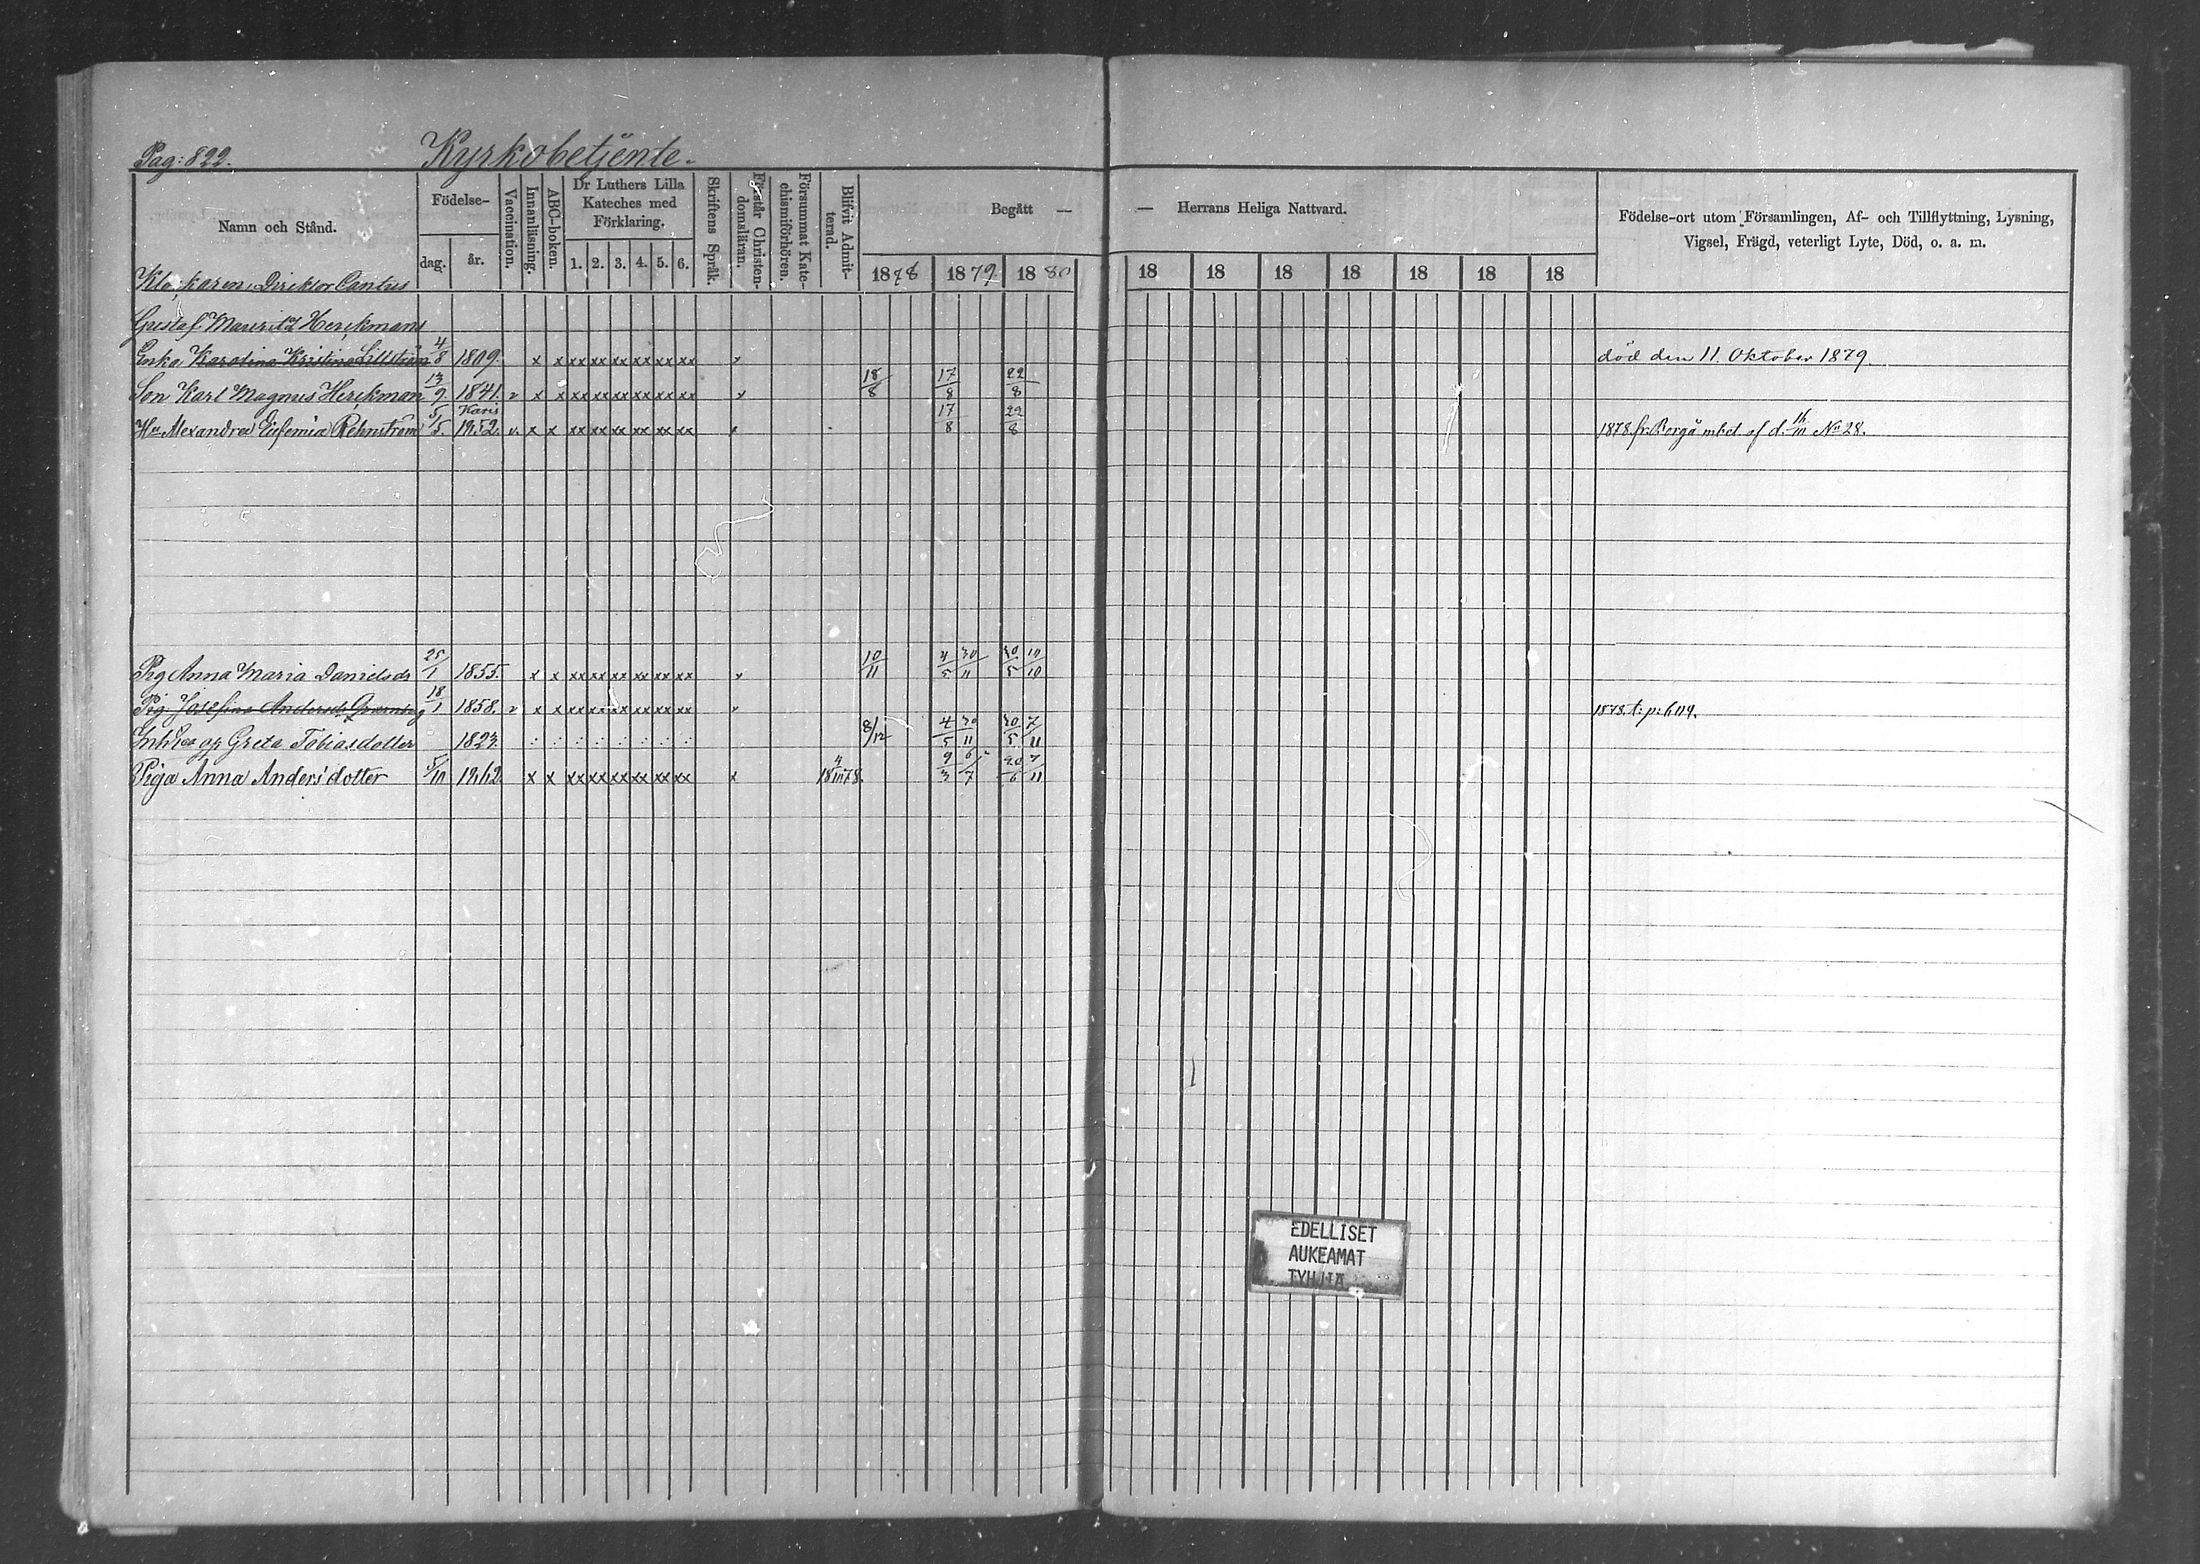 Pag: 822. Kyrkobetjente.
Namn och Stånd. Födelse- dag. år. Vaccination. Innanläsning. ABC-boken. Dr Luthers Lilla Kateches med Förklaring. 1. 2. 3. 4. 5. 6. Skriftens Språk. Förstår Christendomsläran. Försummat Katechismiförhören. Blifvit Admitterad. Begått — 1878 1879. 1880
— Herrans Heliga Nattvard. 18 18 18 18 18 18 18
Födelse-ort utom Församlingen, Af- och Tillflyttning, Lysning,
Vigsel, Frägd, veterligt Lyte, Död, o. a. m.
Klockaren, Direktor Cantus
Gustaf Mauritz Herckmans
Enka Karolina Kristina Lillström 4/8 1809. x x xx xx xx xx xx xx x död den 11. Oktober 1879.
Son Karl Magnus Herckman 13/9 1841. v x x xx xx xx xx xx xx x 18/8 17/8 22/8
Karis
Hu Alexandra Eufemia Rehnström 5/5. 1852. v. x x xx xx xx xx xx xx x 17/8 22/8 1878. fr. Borgå mbet. af d. No 28.
Pig Anna Maria Danielsdr 25/1 1855. x x xx xx xx xx xx xx x 10/11 4/5 30/11 30/5 10/10
Pig. Josefina Andersdr 18/1 1858. v x x xx xx xx xx xx xx x 1878. t. p. 604.
Greta Tobiasdotter 1823. : : : : : : : : 8/12 4/5 30/11 30/5 7/11
Piga Anna Andersdotter 5/10 1862. x x xx xx xx xx xx xx x 18 4/10 78. 9/3 6/7 20/6 7/11
EDELLISET
AUKEAMAT
TYHJIÄ